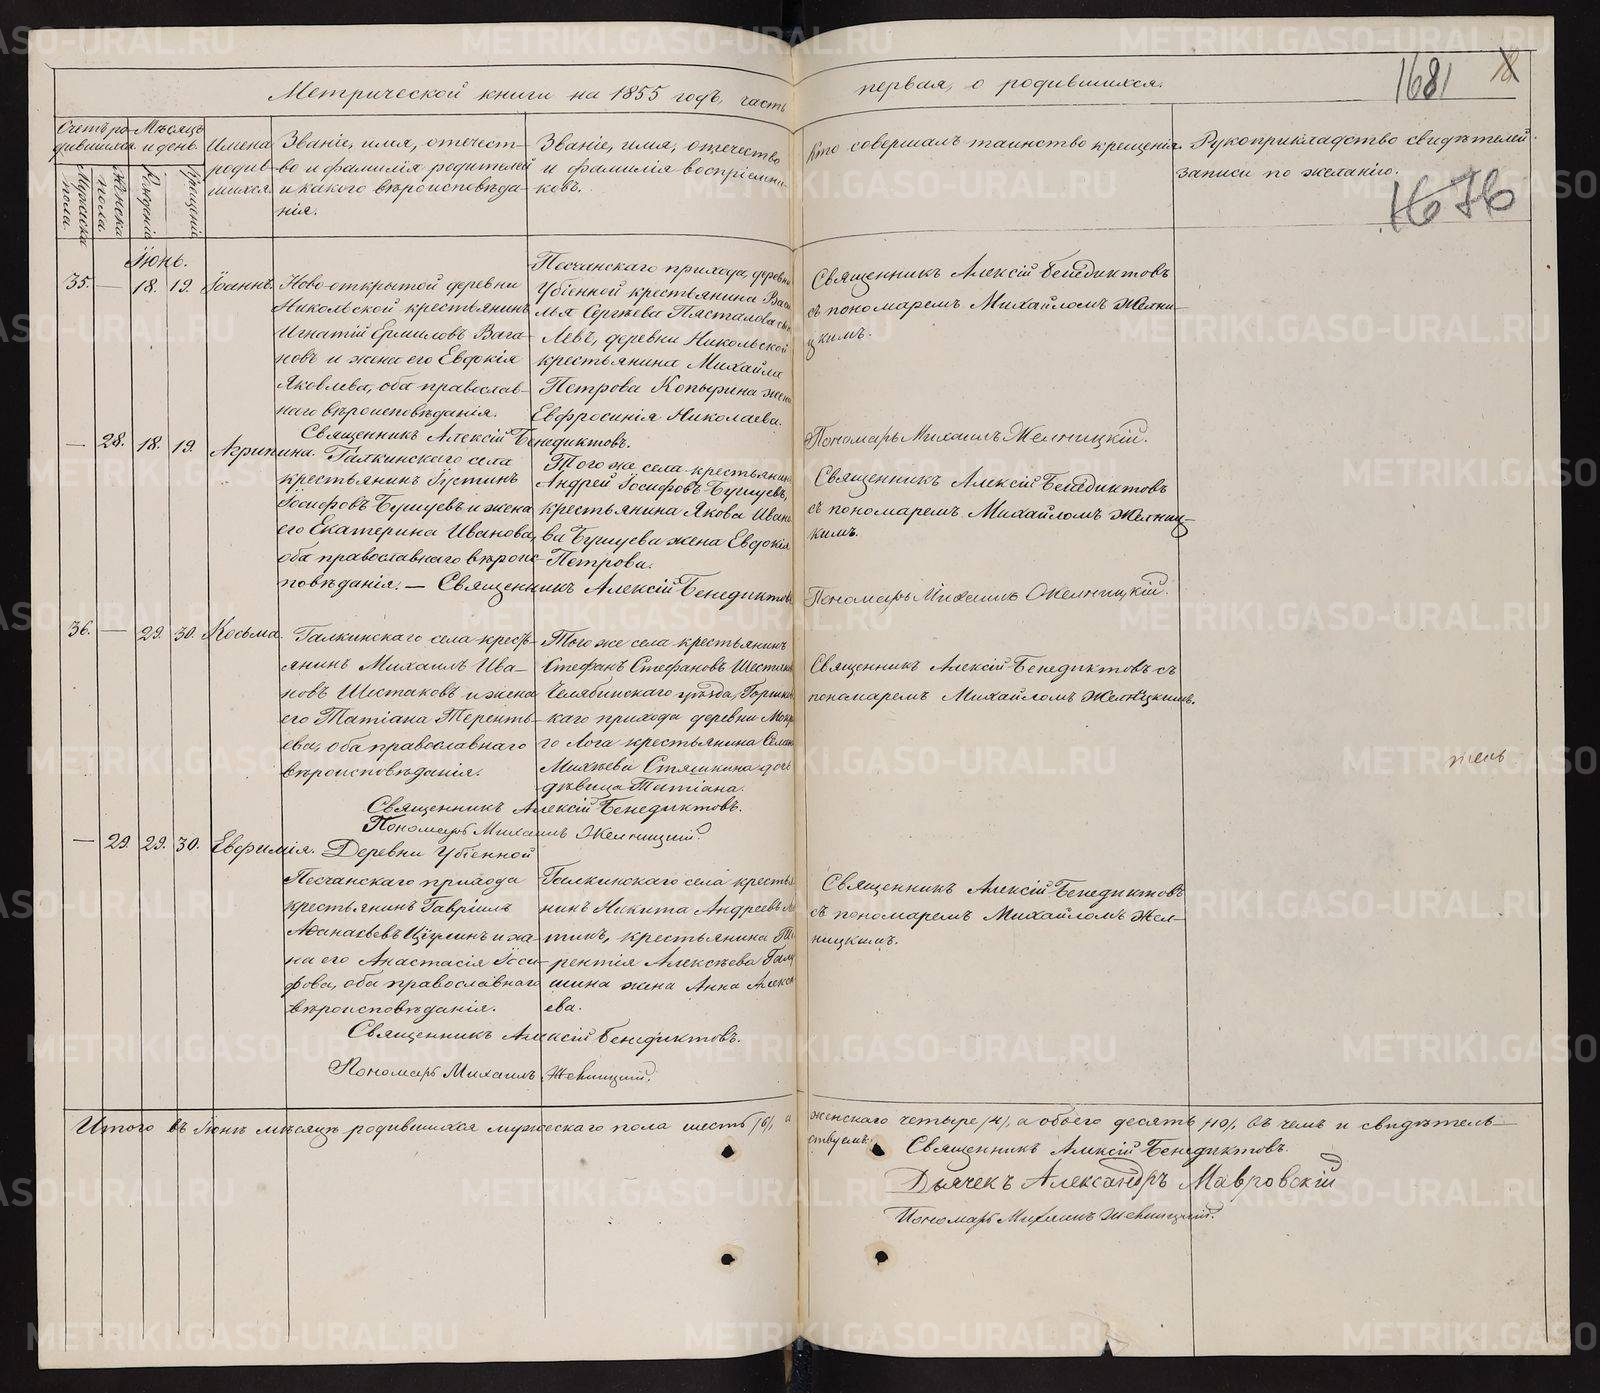 Метрической книги на 1855 годъ, часть
первая, о родившихся.
1681
18
1676
Счетъ ро-
дившихся
Мужеска
пола.
Женска
пола.
Мѣсяцъ
и день.
Рожденія
Крещенія
Имена
родив-
шихся
Званіе, имя, отечест-
во и фамилія родителей
и какого вѣроисповѣда-
нія.
Званіе, имя, отечество
и фамилія воспріемни-
ковъ.
Кто совершалъ таинство крещенія.
Рукоприкладство свидѣтелей
записи по желанію.
Іюнь.
35. — 18. 19. Іоаннъ.
Ново-открытой деревни
Никольской крестьянинъ
Игнатій Ермиловъ Вага-
новъ и жена его Евдокія
Яковлева, оба православ-
наго вѣроисповѣданія.
Песчанскаго прихода, деревни
Убіенной крестьянина Васи
лья Сергѣева
Левъ, деревни Никольской
крестьянина Михайла
Петрова Копырина жена
Евфросинія Николаева.
Священникъ Алексій Бенедиктовъ
съ пономаремъ Михайломъ Желни-
цкимъ.
Священникъ Алексій Бенедиктовъ.
Пономарь Михаилъ Желницкій.
— 28. 18. 19. Агрипина.
Галкинскаго села
крестьянинъ Іустинъ
Іосифовъ Бушуевъ и жена
его Екатерина Иванова,
оба православнаго вѣроис-
повѣданія. — Священникъ Алексій Бенедиктовъ
Того же села крестьянинъ
Андрей Іосифовъ Бушуевъ,
крестьянина Якова Ивано
ва Бушуева жена Евдокія
Петрова.
Священникъ Алексій Бенедиктовъ
съ пономаремъ Михайломъ Желниц-
кимъ.
Пономарь Михаилъ Желницкій.
36. — 29. 30. Косьма.
Галкинскаго села кресть-
янинъ Михаилъ Ива-
новъ Шестаковъ и жена
его Татіана Теренть-
ева, оба православнаго
вѣроисповѣданія.
Того же села крестьянинъ
Стефанъ Стефановъ Шестаковъ
Челябинскаго уѣзда,
каго прихода деревни Мокра
го Лога крестьянина
Михѣева Стяшкина дочь
дѣвица Татіана.
Священникъ Алексій Бенедиктовъ съ
пономаремъ Михайломъ Желницкимъ.
жень
Священникъ Алексій Бенедиктовъ.
Пономарь Михаилъ Желницкій.
— 29. 29. 30. Евфимія.
Деревни Убіенной
Песчанскаго прихода
крестьянинъ Гавріилъ
Аѳанасьевъ и же-
на его Анастасія Іоси-
фова, оба православнаго
вѣроисповѣданія.
Галкинскаго села крестья
нинъ Никита Андреевъ
крестьянина Те
рентія Алексѣева
шина жена Анна Алексѣ
ева.
Священникъ Алексій Бенедиктовъ
съ пономаремъ Михайломъ Жел-
ницкимъ.
Священникъ Алексій Бенедиктовъ.
Пономарь Михаилъ Желницкій.
Итого въ Іюнѣ мѣсяцѣ родившихся мужескаго пола шесть /6/, а
женскаго четыре /4/, а обоего десять /10/, въ чемъ и свидѣтель-
ствуемъ:
Священникъ Алексій Бенедиктовъ.
Дьячекъ Александръ Мавровскій
Пономарь Михаилъ Желницкій.
METRIKI.GASO-URAL.RU